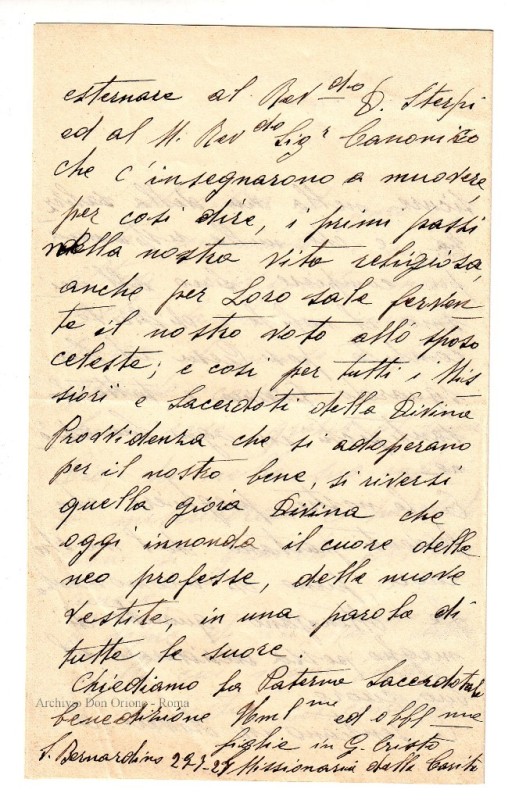 esternare al Rev.do D. Sterpi
ed al M. Rev.do Sigr Canonizo
che c'insegnarono a muovere,
per così dire, i primi passi
nella nostra vita religiosa,
anche per Loro sale ferven
te il nostro voto allo sposo
celeste; e così per tutti i Mis
siori e Sacerdoti della Divina
Provvidenza che si adoperano
per il nostro bene, si riversi
quella gioia Divina che
oggi innonda il cuore delle
neo professe, delle nuove
vestite, in una parola di
tutte le suore.
Chiediamo la Paterna Sacerdotale
Archivio Don Orione - Roma
benedizione Uml.me ed obbl.me
figlie in G. Cristo
S. Bernardino Missionarie della Carità